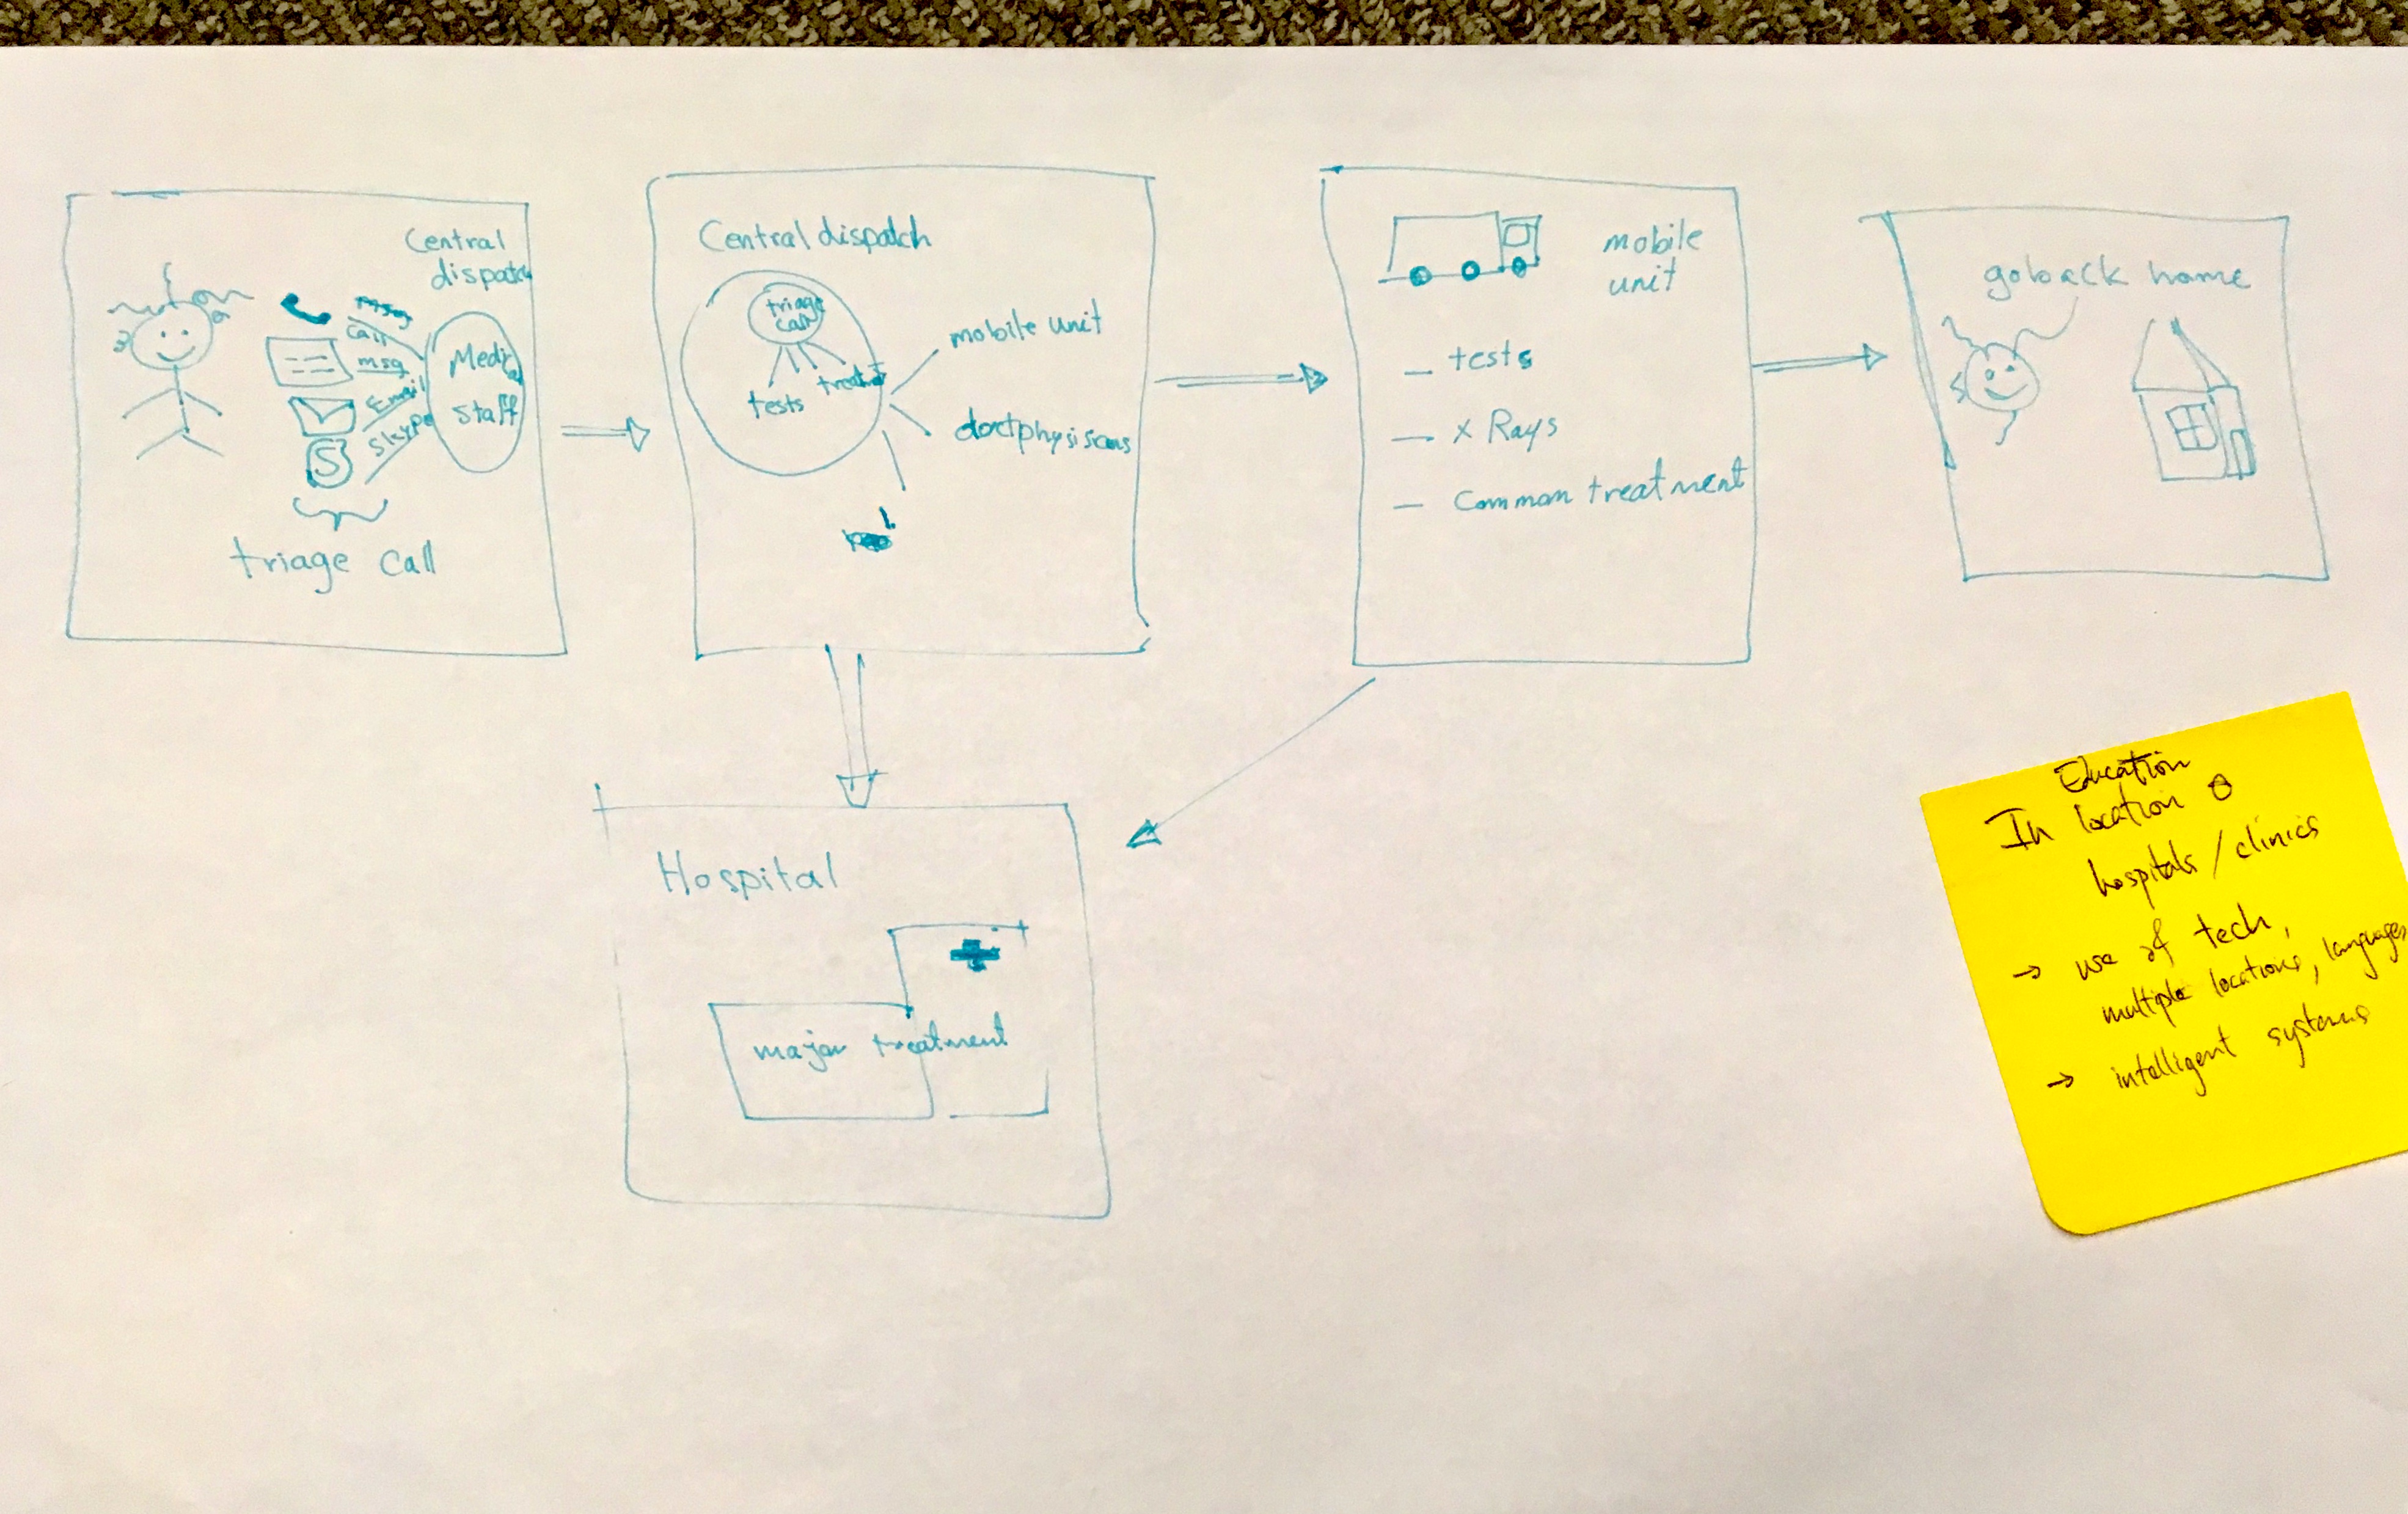 Central
dispatch
call
msg
Email
Skype
Medical
Staff
S
triage call
Central dispatch
triage
call
tests
mobile unit
mobile
unit
- tests
- x Rays
- Common treatment
go back home
Hospital
major treatment
Education
In location
hospitals / clinics
→ use of tech,
multiple locations, languages
→ intelligent systems